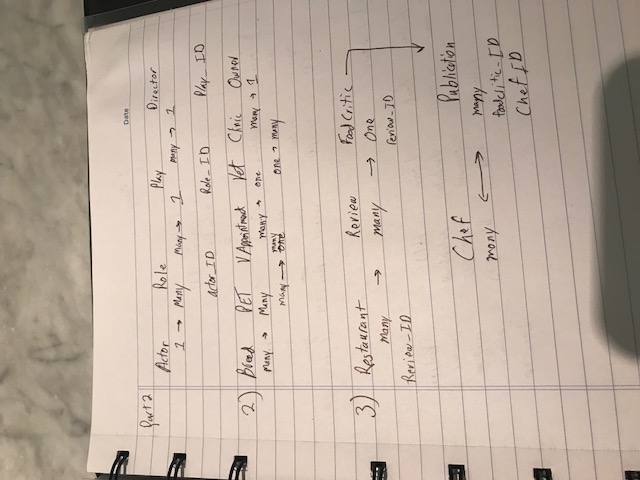 Date
Part 2
Actor Role Play Director
1 → Many many → 1 many → 1
actor_ID Role_ID Play_ID
2) Breed PET V Appointment Vet Clinic Owner
many → Many many → one many → 1
many → many one one → many
3) Restaurant Review Food Critic
many → many → One
Review_ID review_ID
Chef Publication
many ↔ many
foodcritic_ID
Chef ID